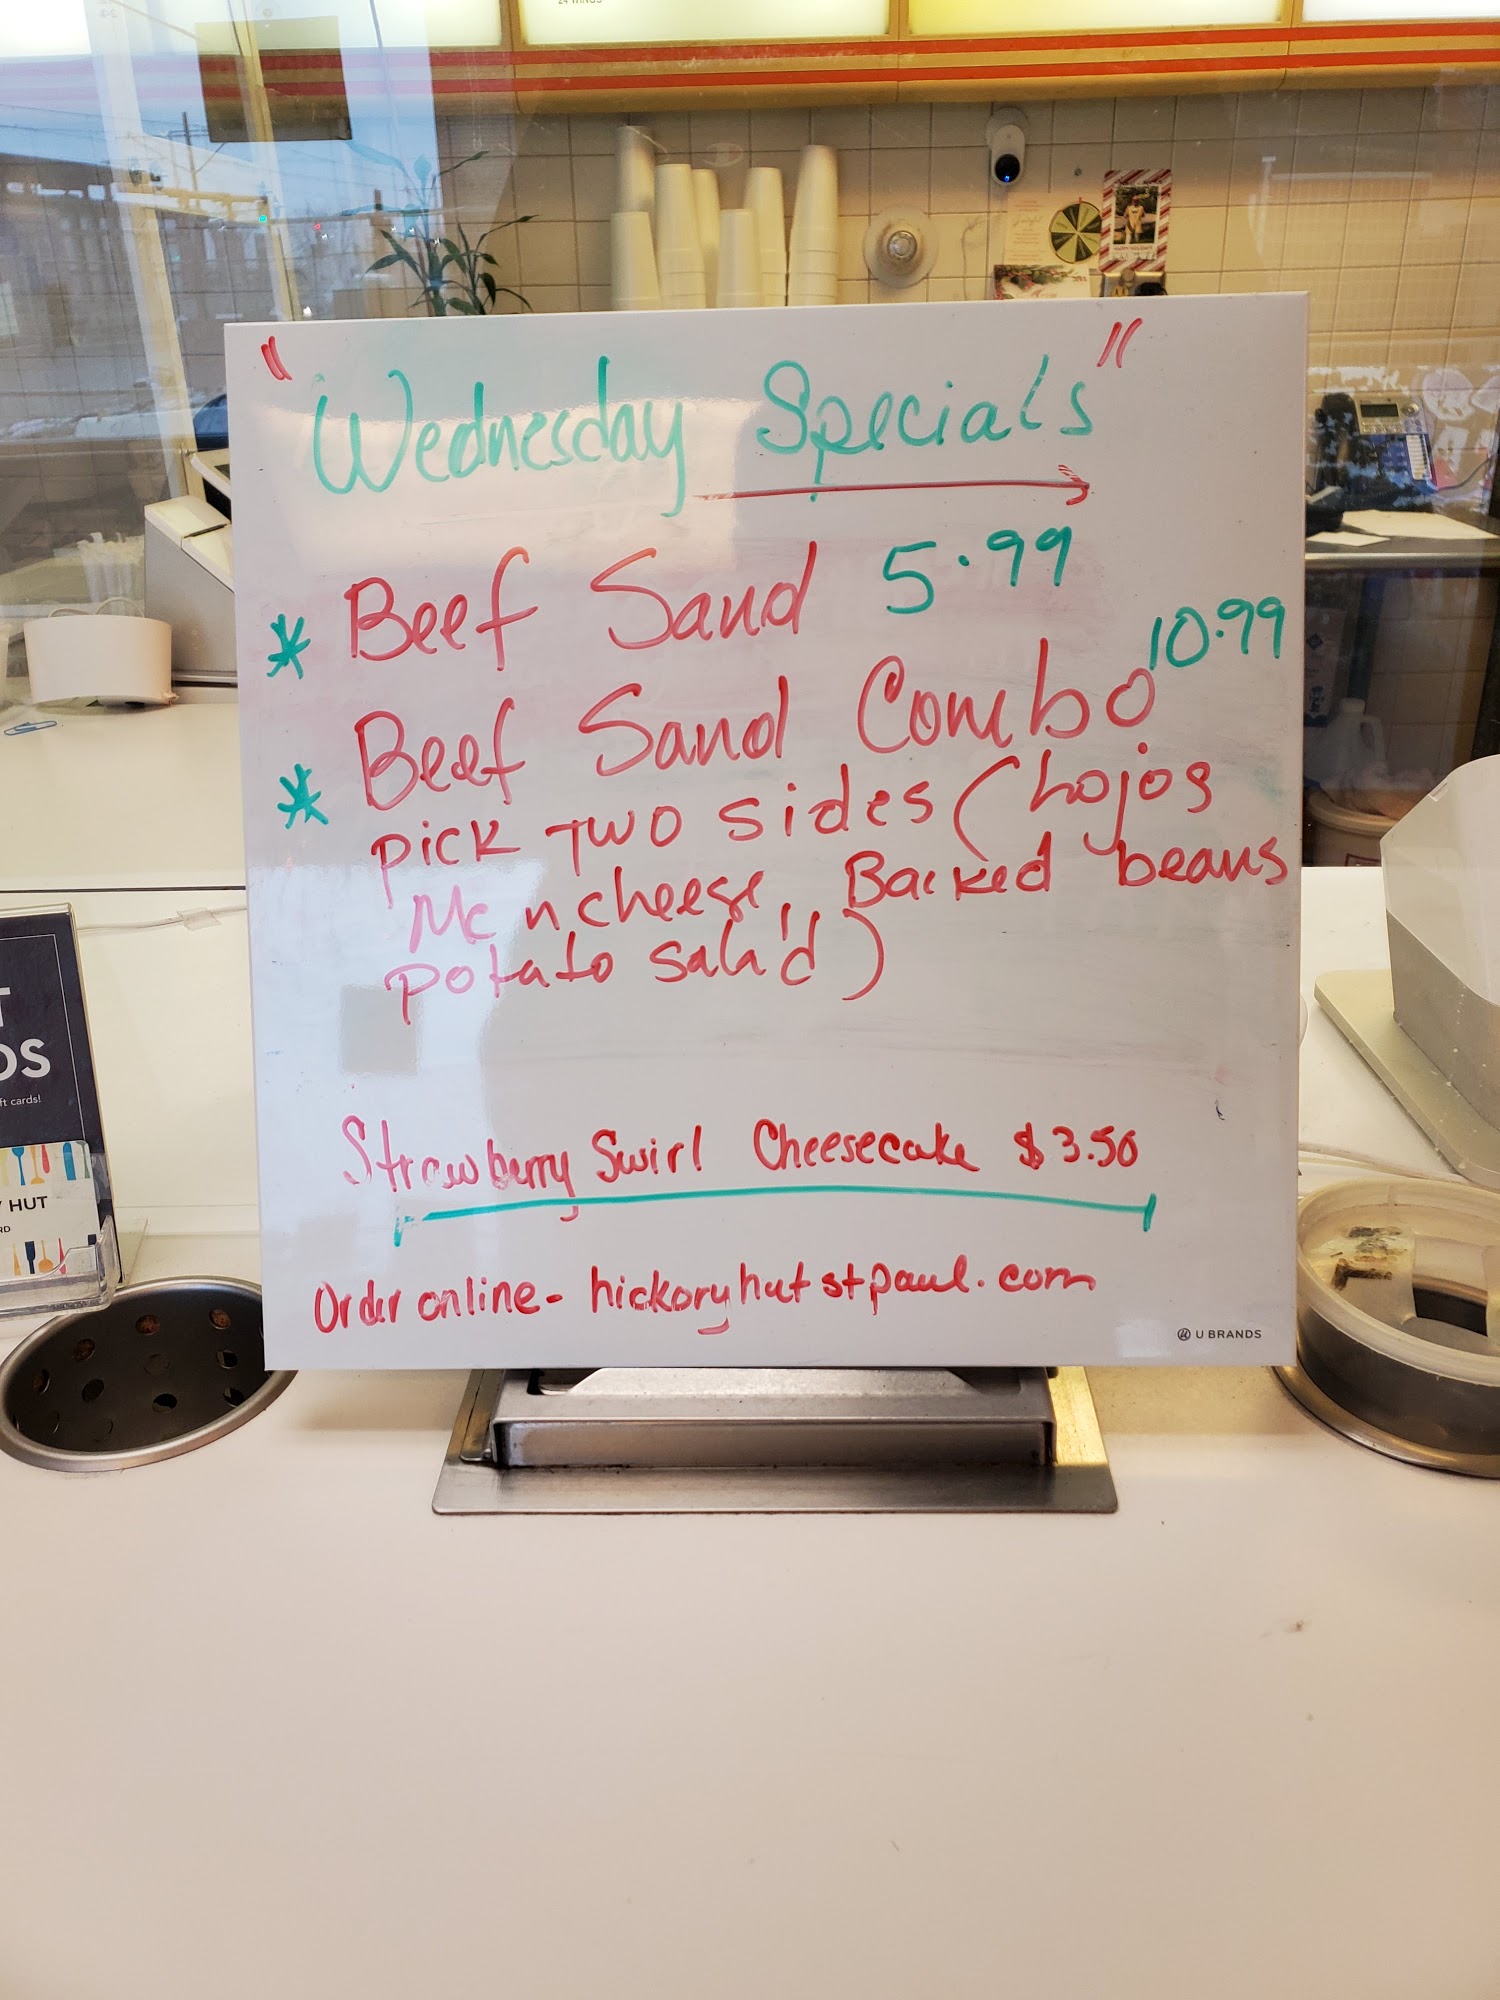 24 WINGS
"Wednesday Specials"
* Beef Sand 5.99
* Beef Sand Combo 10.99
pick two sides (hojos
Mc n cheese, Backed beans
potato sala'd)
Strawberry Swirl Cheesecake $3.50
Order online- hickoryhutstpaul.com
U BRANDS
T
DS
ft cards!
Y HUT
RD